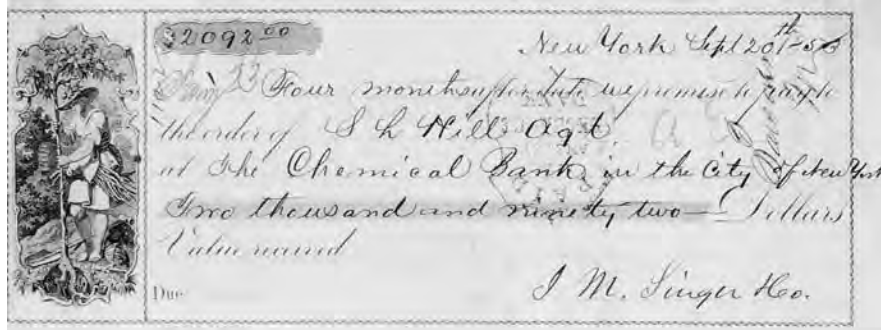 $2092.00
New York Sept 20th 1856
Four months after date we promise to pay to
the order of S L Hill Agt
at The Chemical Bank, in the City of New York
Two thousand and ninety two — Dollars
Value received
Due
I. M. Singer & Co.